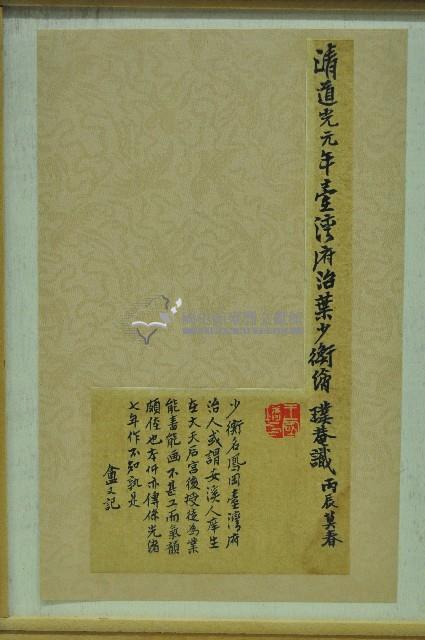 清道光元年臺灣府治葉少衡繪 璞菴識 丙辰莫春
少衡名鳳岡臺灣府
治人或謂安溪人庠生
在大天后宮後授徒為業
能書能画不甚工而氣韻
頗佳也本件亦傳係光緒
七年作不知孰是
盦又記